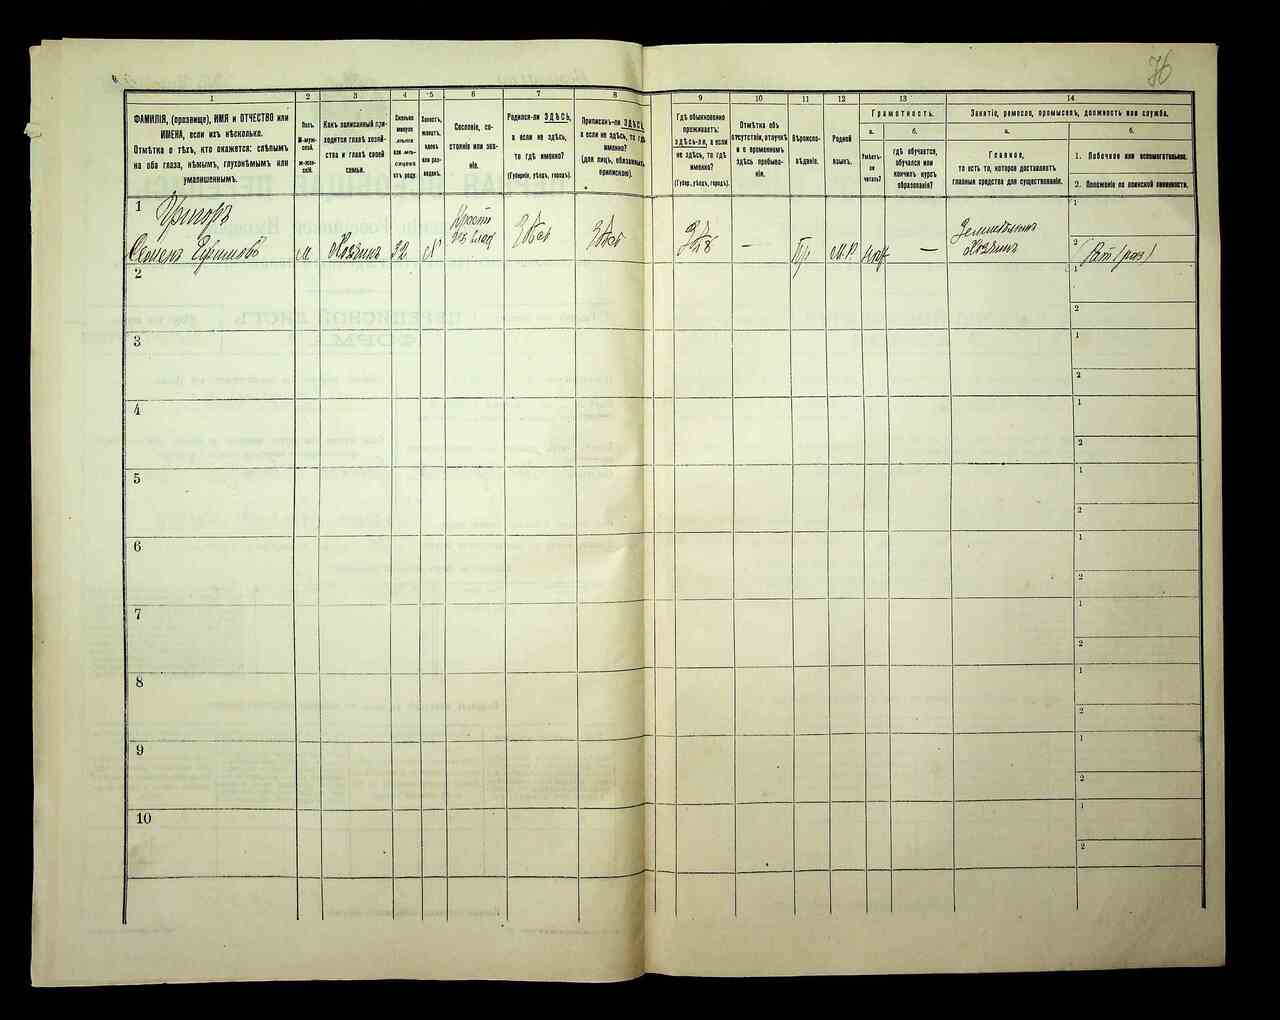 76
1
2
3
4
5
6
7
8
9
10
11
12
13
14
ФАМИЛІЯ, (прозвище), ИМЯ и ОТЧЕСТВО или
ИМЕНА, если ихъ нѣсколько.
Отмѣтка о тѣхъ, кто окажется: слѣпымъ
на оба глаза, нѣмымъ, глухонѣмымъ или
умалишеннымъ.
Полъ.
М-муж-
ской.
Ж-жен-
скій.
Какъ записанный при-
ходится главѣ хозяй-
ства и главѣ своей
семьи.
Сколько
минуло
лѣтъ
или мѣ-
сяцевъ
отъ роду.
Холостъ,
женатъ,
вдовъ
или раз-
веденъ.
Сословіе, со-
стояніе или зва-
ніе.
Родился-ли ЗДѢСЬ,
а если не здѣсь,
то гдѣ именно?
(Губернія, уѣздъ, городъ).
Приписанъ-ли ЗДѢСЬ,
а если не здѣсь, то гдѣ
именно?
(для лицъ, обязанныхъ
припискою).
Гдѣ обыкновенно
проживаетъ:
здѣсь-ли, а если
не здѣсь, то гдѣ
именно?
(Губер, уѣздъ, городъ).
Отмѣтка объ
отсутствіи, отлучкѣ
и о временномъ
здѣсь пребыва-
ніи.
Вѣроиспо-
вѣданіе.
Родной
языкъ.
Грамотность.
а.
б.
Умѣетъ-
ли
читать?
гдѣ обучается,
обучался или
кончилъ курсъ
образованія?
Занятіе, ремесло, промыселъ, должность или служба.
а.
б.
Главное,
то есть то, которое доставляетъ
главныя средства для существованія.
1. Побочное или вспомогательное.
2. Положеніе по воинской повинности.
1
Семенъ
м
Хозяинъ
32
Здѣсь
Здѣсь
—
Пр
М.Р.
—
Хозяинъ
1
2
2
1
2
3
1
2
4
1
2
5
1
2
6
1
2
7
1
2
8
1
2
9
1
2
10
1
2